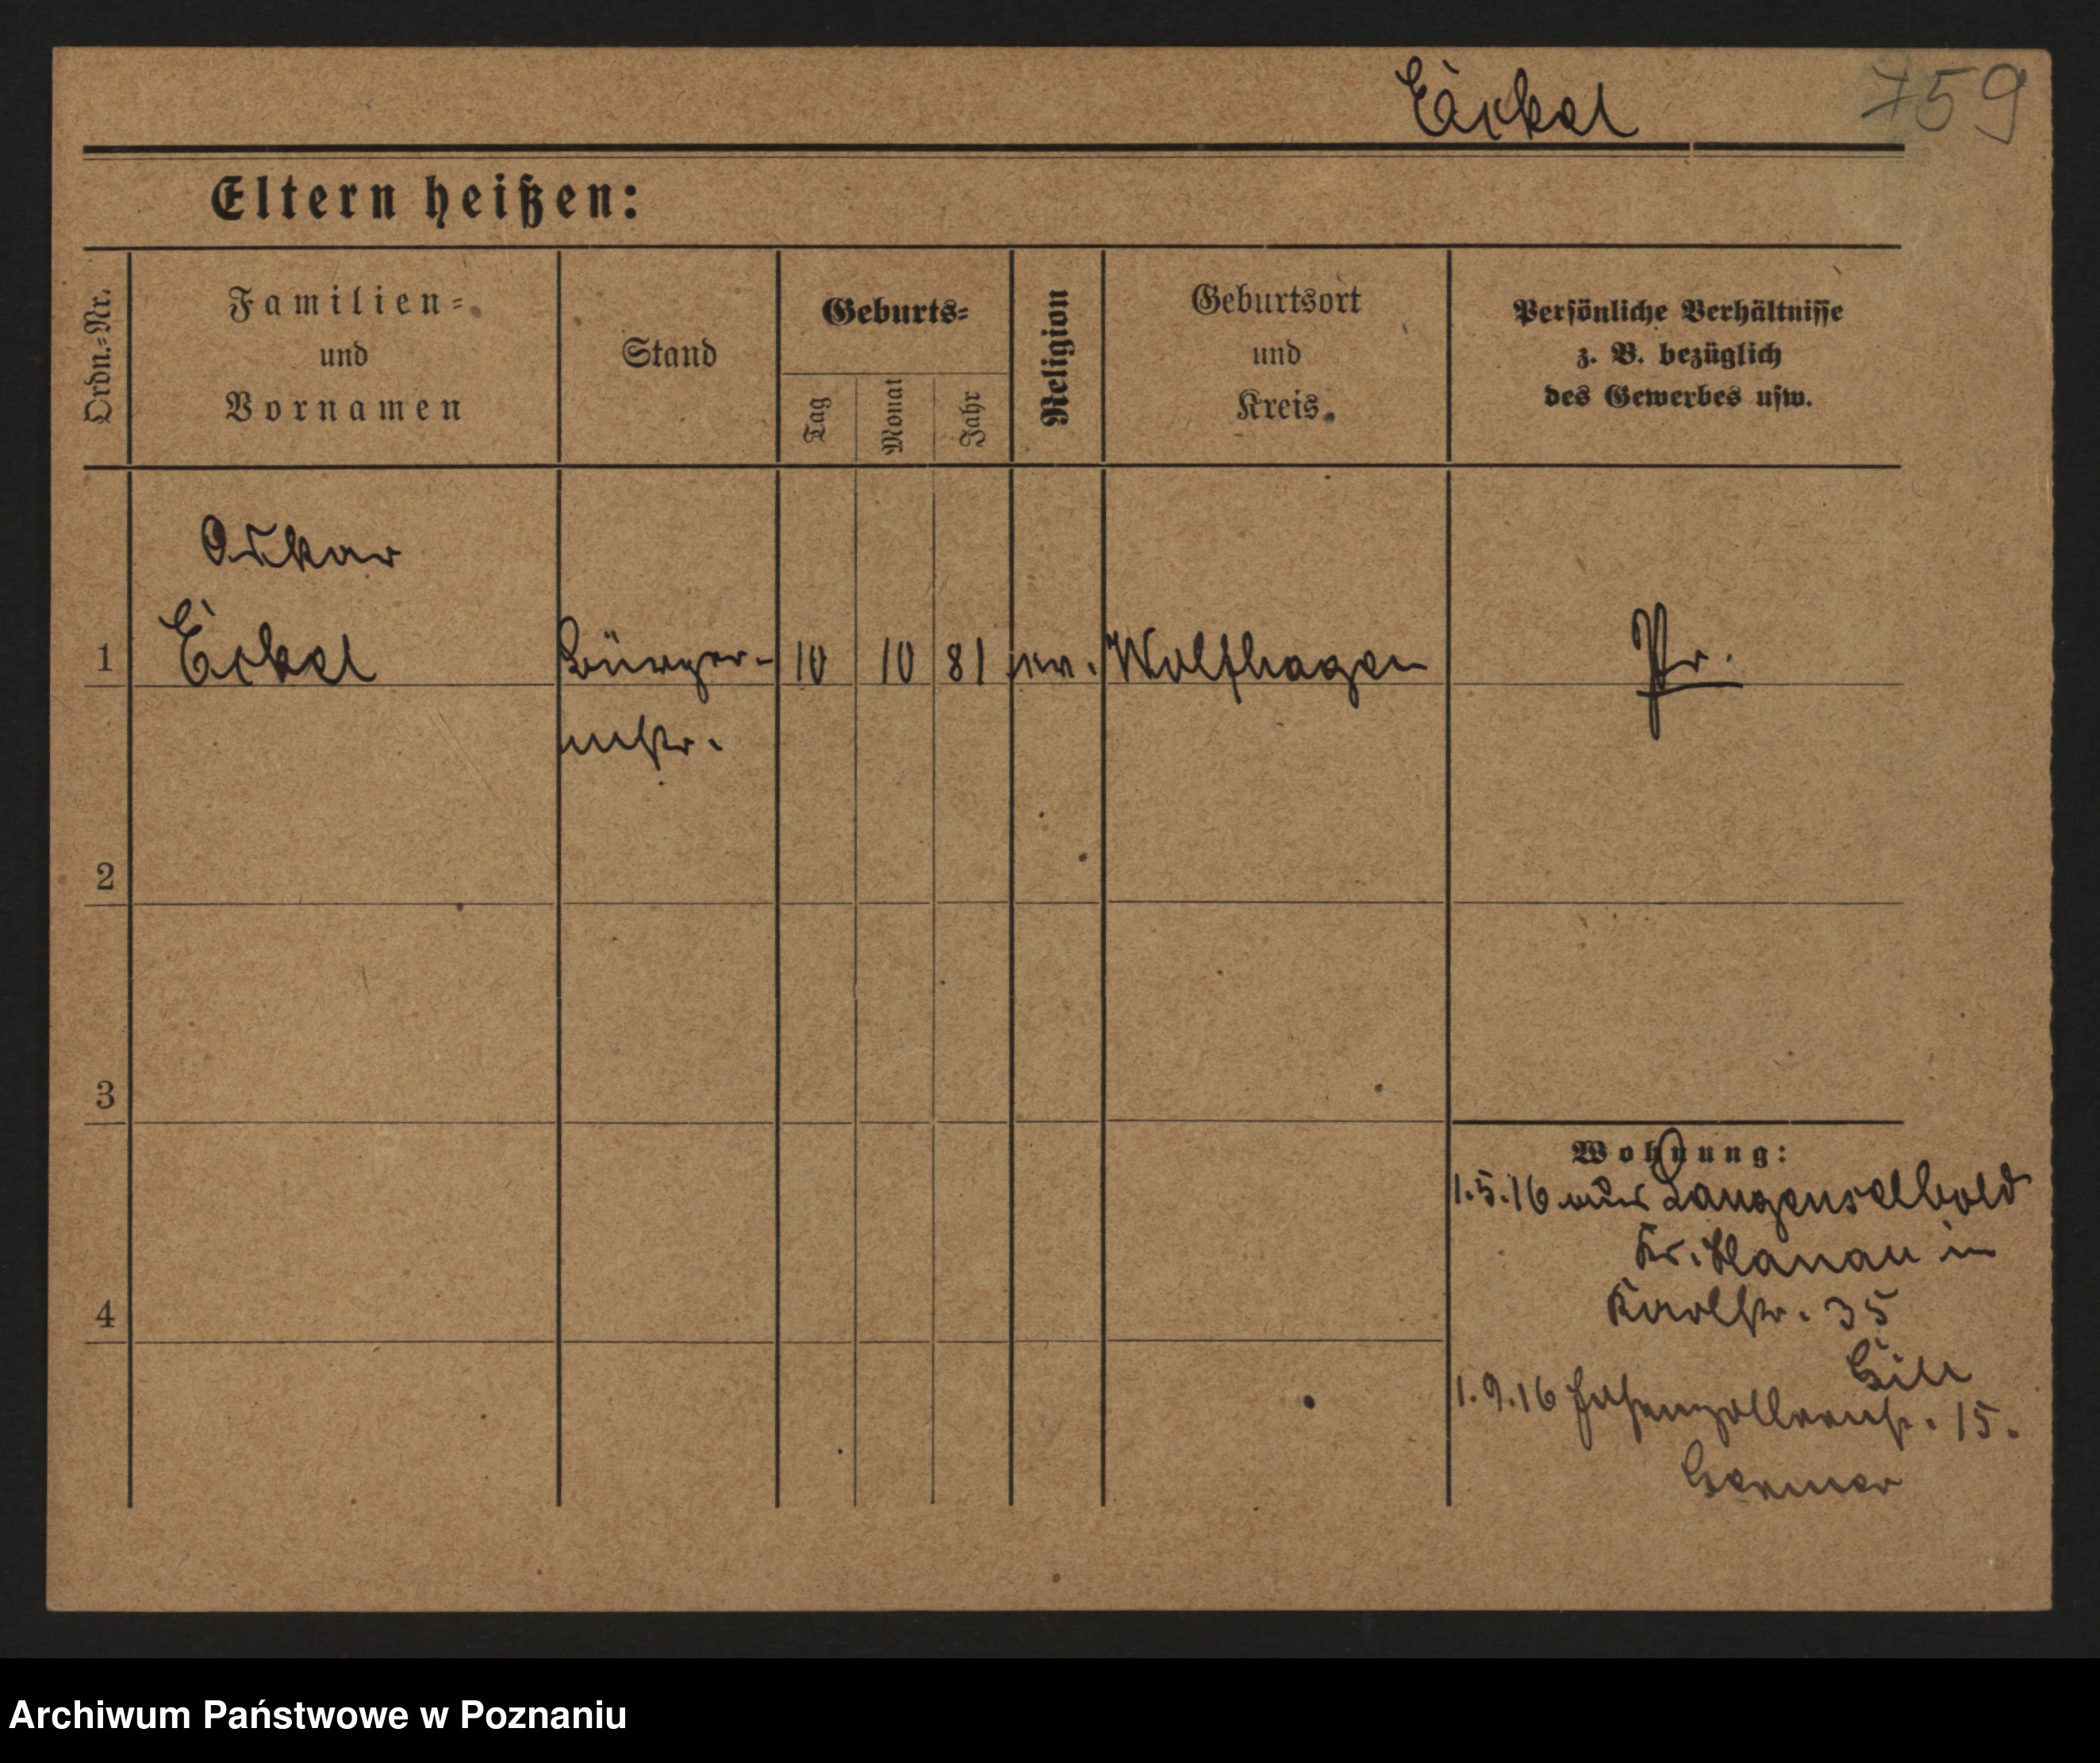 Eckel 759
Eltern heißen:
Ordn.-Nr.
Familien-
und
Vornamen
Stand
Geburts-
Tag
Monat
Jahr
Religion
Geburtsort
und
Kreis.
Persönliche Verhältnisse
z. B. bezüglich
des Gewerbes usw.
Oskar
1 Eckel Bürger- 10 10 81 ev. Wolfhagen Pr.
mstr.
2
3
Wohnung:
1.5.16 aus Langenselbold
Kr. Hanau in
4 Karlstr. 35
1.9.16 Hohenzollernstr. 15.
Archiwum Państwowe w Poznaniu